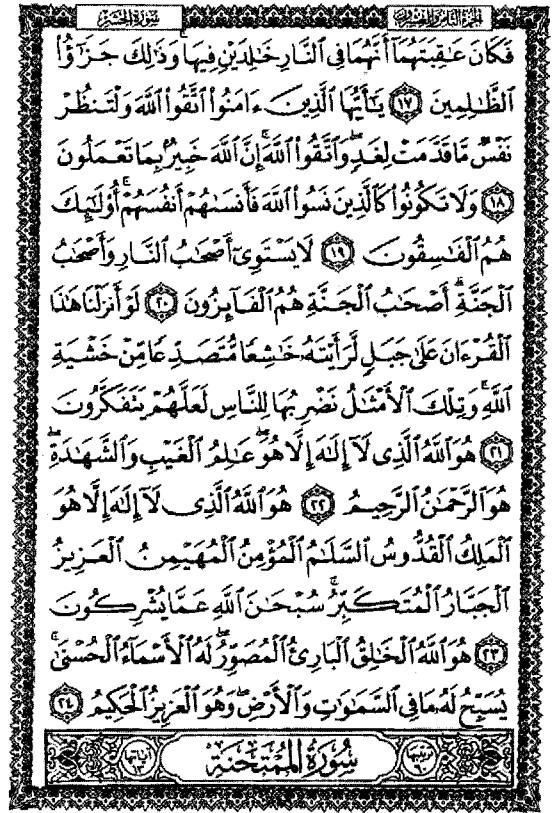 الجزء الثامن والعشرون سورة الحشر
فَكَانَ عَٰقِبَتَهُمَآ أَنَّهُمَا فِي ٱلنَّارِ خَٰلِدَيْنِ فِيهَا ۚ وَذَٰلِكَ جَزَٰٓؤُا۟
ٱلظَّٰلِمِينَ ١٧ يَٰٓأَيُّهَا ٱلَّذِينَ ءَامَنُوا۟ ٱتَّقُوا۟ ٱللَّهَ وَلْتَنظُرْ
نَفْسٌ مَّا قَدَّمَتْ لِغَدٍ ۖ وَٱتَّقُوا۟ ٱللَّهَ ۚ إِنَّ ٱللَّهَ خَبِيرٌۢ بِمَا تَعْمَلُونَ
١٨ وَلَا تَكُونُوا۟ كَٱلَّذِينَ نَسُوا۟ ٱللَّهَ فَأَنسَىٰهُمْ أَنفُسَهُمْ ۚ أُو۟لَٰٓئِكَ
هُمُ ٱلْفَٰسِقُونَ ١٩ لَا يَسْتَوِيٓ أَصْحَٰبُ ٱلنَّارِ وَأَصْحَٰبُ
ٱلْجَنَّةِ ۚ أَصْحَٰبُ ٱلْجَنَّةِ هُمُ ٱلْفَآئِزُونَ ٢٠ لَوْ أَنزَلْنَا هَٰذَا
ٱلْقُرْءَانَ عَلَىٰ جَبَلٍ لَّرَأَيْتَهُۥ خَٰشِعًا مُّتَصَدِّعًا مِّنْ خَشْيَةِ
ٱللَّهِ ۚ وَتِلْكَ ٱلْأَمْثَٰلُ نَضْرِبُهَا لِلنَّاسِ لَعَلَّهُمْ يَتَفَكَّرُونَ
٢١ هُوَ ٱللَّهُ ٱلَّذِي لَآ إِلَٰهَ إِلَّا هُوَ ۖ عَٰلِمُ ٱلْغَيْبِ وَٱلشَّهَٰدَةِ ۖ
هُوَ ٱلرَّحْمَٰنُ ٱلرَّحِيمُ ٢٢ هُوَ ٱللَّهُ ٱلَّذِي لَآ إِلَٰهَ إِلَّا هُوَ
ٱلْمَلِكُ ٱلْقُدُّوسُ ٱلسَّلَٰمُ ٱلْمُؤْمِنُ ٱلْمُهَيْمِنُ ٱلْعَزِيزُ
ٱلْجَبَّارُ ٱلْمُتَكَبِّرُ ۚ سُبْحَٰنَ ٱللَّهِ عَمَّا يُشْرِكُونَ
٢٣ هُوَ ٱللَّهُ ٱلْخَٰلِقُ ٱلْبَارِئُ ٱلْمُصَوِّرُ ۖ لَهُ ٱلْأَسْمَآءُ ٱلْحُسْنَىٰ ۚ
يُسَبِّحُ لَهُۥ مَا فِي ٱلسَّمَٰوَٰتِ وَٱلْأَرْضِ ۖ وَهُوَ ٱلْعَزِيزُ ٱلْحَكِيمُ ٢٤
ترتيبها ٦٠ سورة الممتحنة آياتها ١٣